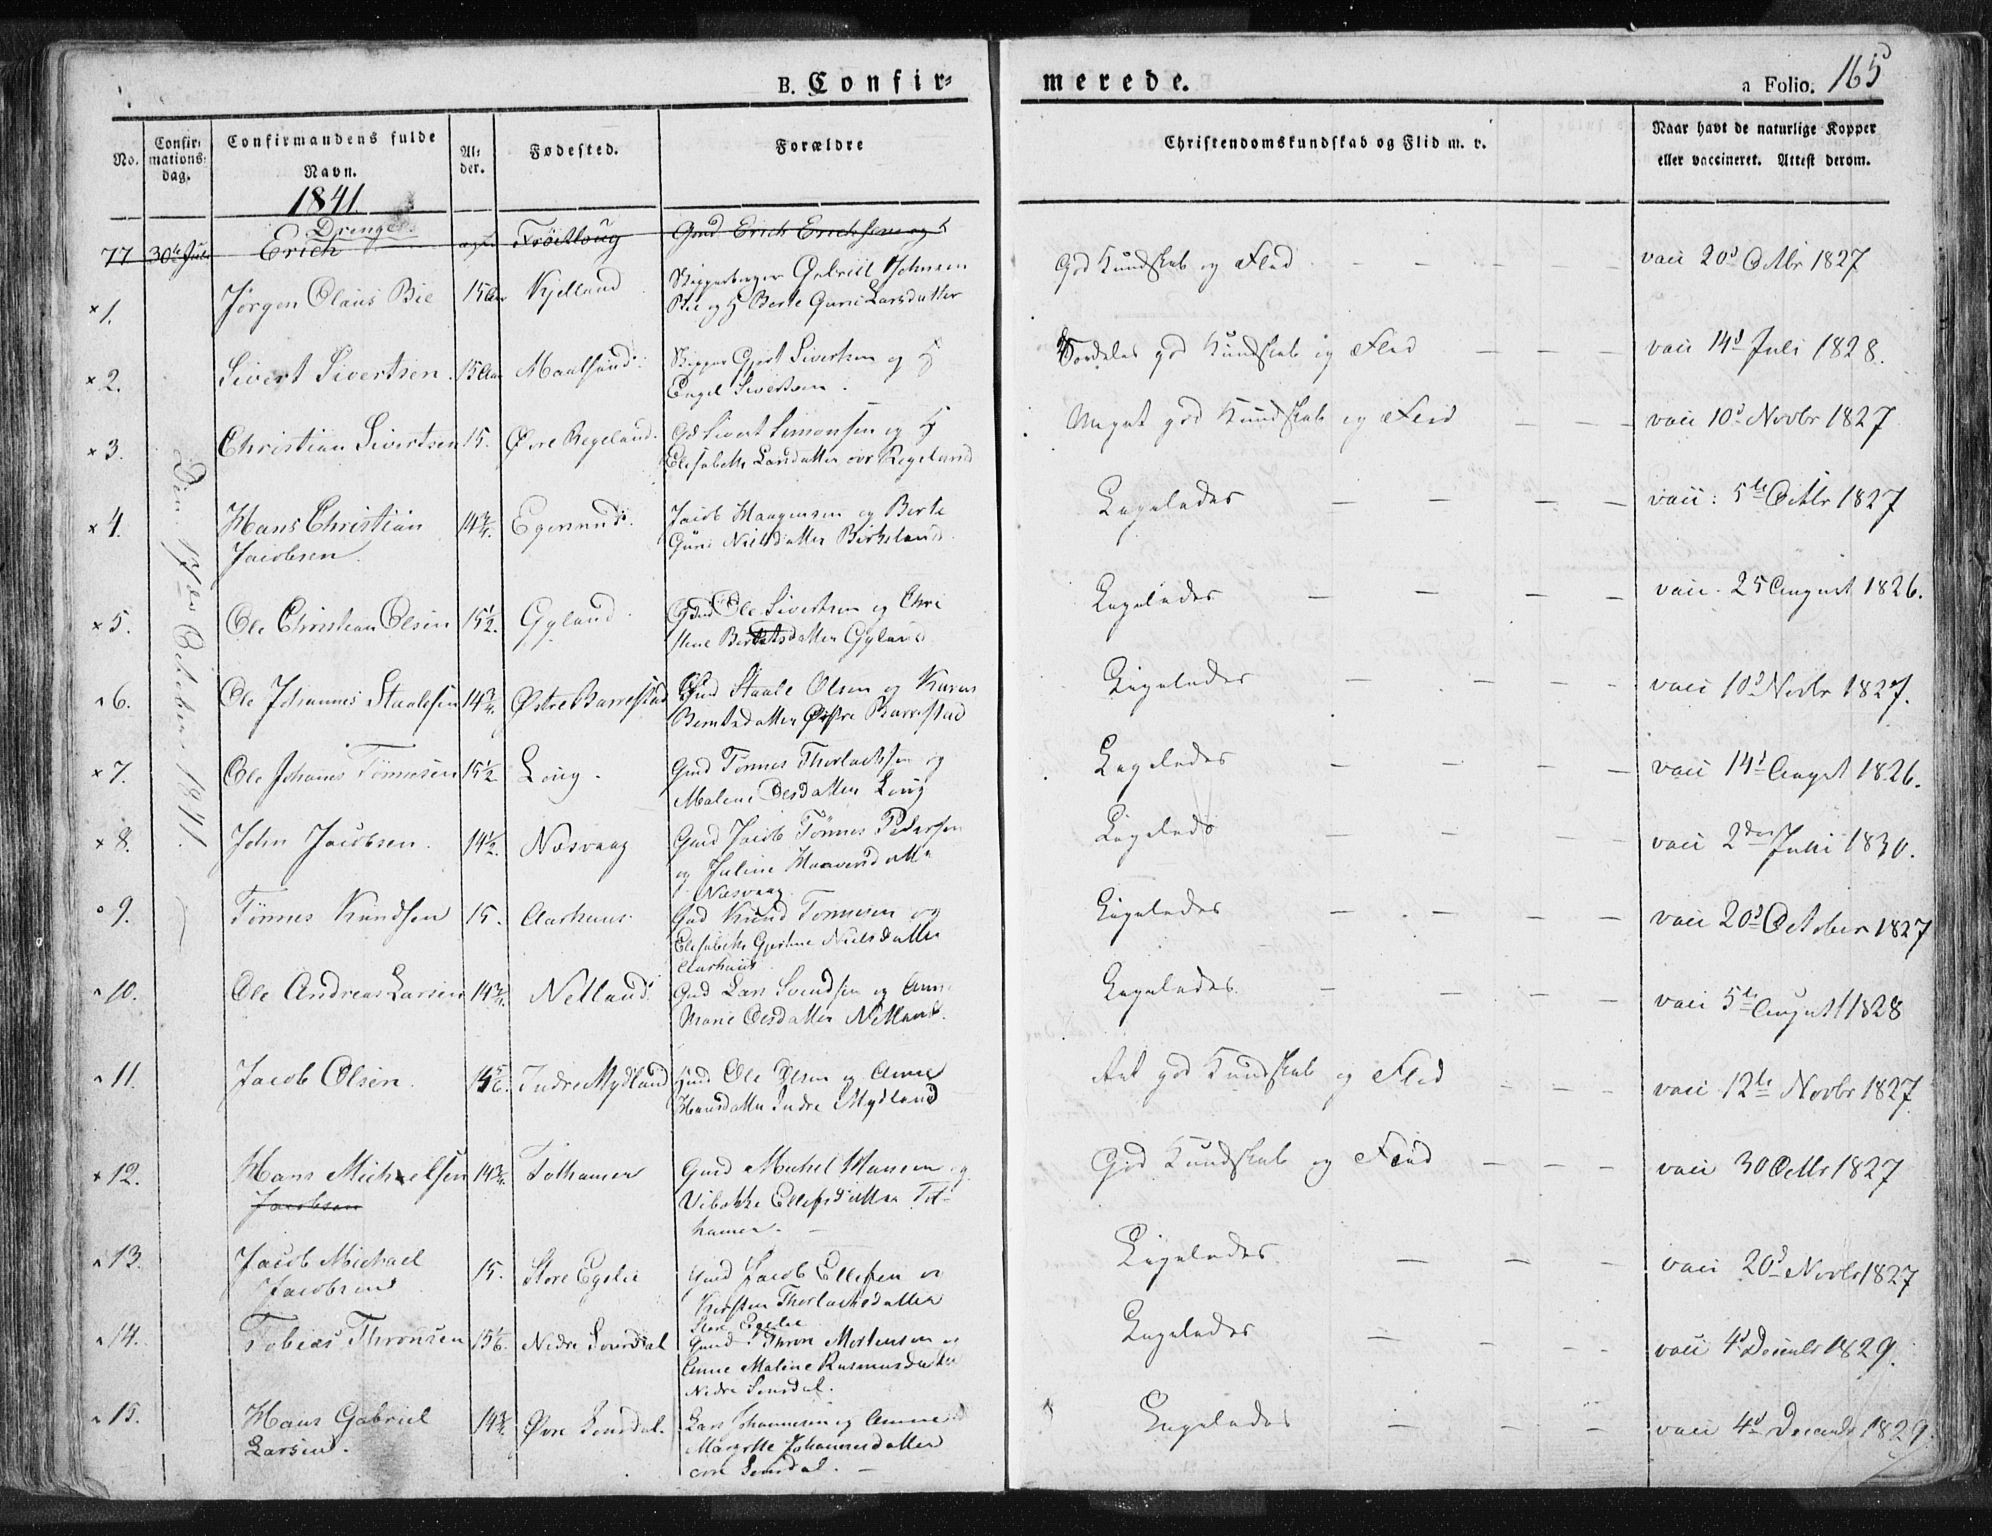 B. Confir-
merede.
a Folio. 165
No.
Confir-
mations-
dag.
Confirmandens fulde
Navn.
Al-
der.
Fødested.
Forældre
Christendomskundskab og Flid m. v.
Naar havt de naturlige Kopper
eller vaccineret. Attest derom.
1841
Drenge
77 30te Erich
Gmd Erich Erichsen og H
Den October 1841.
1. Jørgen Olaus Bie 15 Aar Kjelland Gabriel Johnsen
Bie og H Berte Guri Larsdatter
God Kundskab og Flid vacc 20d Octbr 1827
2. Sivert Sivertsen 15 Aar Skipper Gjert Sivertsen og H
Engel Sivertsen.
god Kundskab og Flid vacc 14d Juli 1828.
3. Christian Sivertsen 15. Øvre Regeland. Gd Sivert Simonsen og H
Elisabeth Larsdatter øvr Regeland
Meget god Kundskab og Flid vacc 10d Novbr 1827
4. Hans Christian
Jacobsen
14 3/4. Egersund. Jacob Haagensen og Berte
Guri Nielsdatter Birkeland.
Ligeledes vacc: 5te Octbr 1827
5. Ole Christian Olsen 15 1/2. Gyland Gmd Ole Sivertsen og Chri
stene Berntsdatter Gyland
Ligeledes vacc. 25 August 1826.
6. Ole Johannes Staalesen 14 3/4. Østre Barrestad Gmd Staale Olsen og Karen
Berntsdatter Østre Barrestad
Ligeledes vacc 10d Novbr 1827.
7. Ole Johannes Tønnesen 15 1/2. Loug. Gmd Tønnes Thorlachsen og
Malene Olesdatter Loug
Ligeledes vacc 14d Augst 1826.
8. John Jacobsen. 14 1/2. Næsvaag Gmd Jacob Tønnes Pedersen
og Juline Haavorsdatter
Næsvaag
Ligeledes vacc 2den Juli 1830.
9. Tønnes Knudsen 15. Aarhuus. Gmd Knud Tønnesen og
Elisabeth Gjertine Nielsdatter
Aarhuus
Ligeledes vacc 20d October 1827
10. Ole Andreas Larsen 14 3/4. Netland Gmd Lars Svendsen og Anne
Marie Olesdatter Netland.
Ligeledes vacc 5te August 1828
11. Jacob Olsen. Indre Mydland Gmd Ole Olsen og Anne
Hansdatter Indre Mydland
god Kundskab og Flid vacc 12te Novbr 1827
12. Hans Michaelsen
Jacobsen
14 3/4. Tothamer Gmd Michel Hansen og
Vibekke Ellefsdatter Tot-
hamer.
God Kundskab og Flid vacc 30 Octbr 1827
13. Jacob Michael
Jacobsen
15. Store Egelie Gmd Jacob Ellefsen og
Kirsten Thorlachsdatter
Store Egelie
Ligeledes vacc 20d Novbr 1827
14. Tobias Thronsen 15 1/6. Nedre Sirdal Gmd Thron Mortensen og
Anne Maline Rasmusdatter
Ligeledes vacc 4d Decembr 1829.
15. Hans Gabriel
Larsen.
14 3/4. Øvre Lars Johannesen og Anne
Marethe Johannesdatter
Ligeledes vacc 4d Decembr 1829.